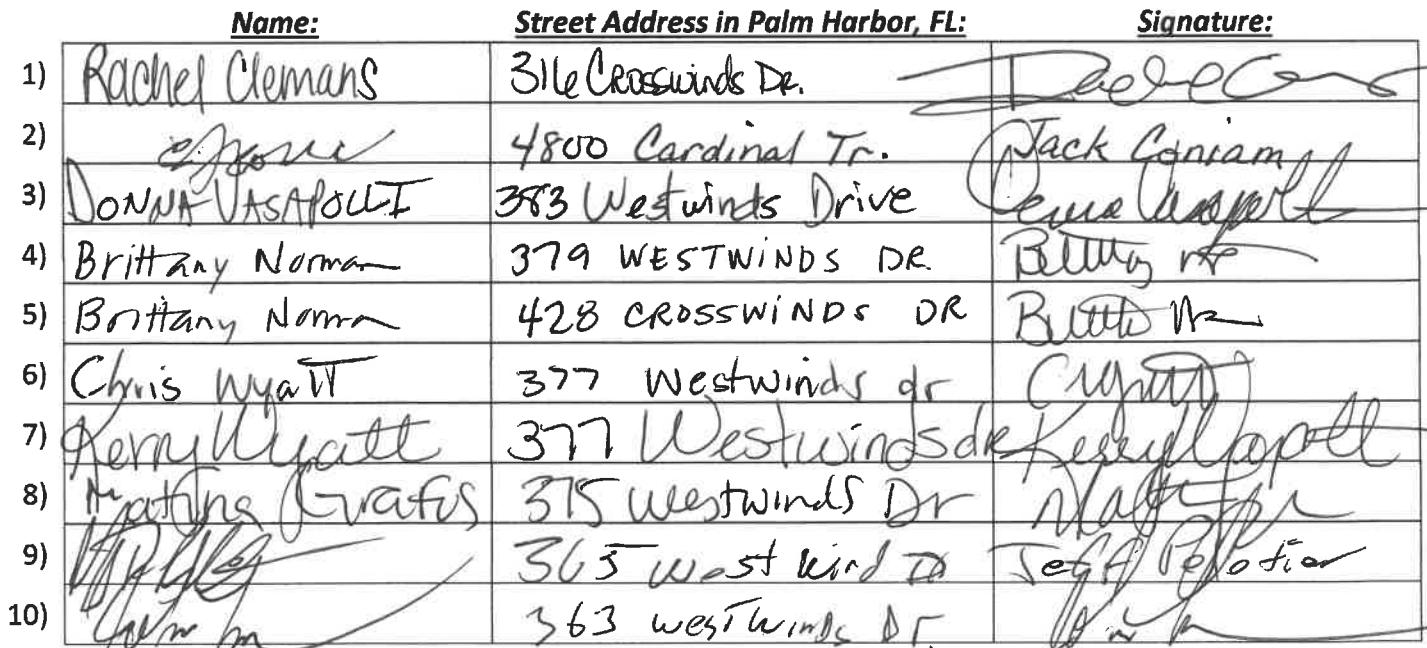 Name: Street Address in Palm Harbor, FL: Signature:
1) Rachel Clemans 316 Crosswinds Dr.
2) 4800 Cardinal Tr. Jack Coniam
3) DONNA VASAPOLLI 383 Westwinds Drive
4) Brittany Norman 379 WESTWINDS DR.
5) Brittany Norman 428 CROSSWINDS DR
6) Chris Wyatt 377 Westwinds dr
7) Kerry Wyatt 377 Westwinds dr
8) 375 Westwinds Dr
9) 365 West Wind D Jeff Pelotier
10) 363 westwinds Dr.